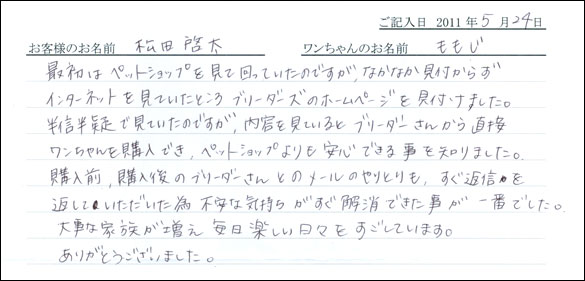 ご記入日 2011年5月24日
お客様のお名前 松田 啓太 ワンちゃんのお名前 ももじ
最初はペットショップを見て回っていたのですが、なかなか見付からず
インターネットを見ていたところブリーダーズのホームページを見付けました。
半信半疑で見ていたのですが、内容を見ているとブリーダーさんから直接
ワンちゃんを購入でき、ペットショップよりも安心できる事を知りました。
購入前、購入後のブリーダーさんとのメールのやりとりも、すぐ返信を
返していただいた為 不安な気持ちがすぐ解消できた事が一番でした。
大事な家族が増え 毎日楽しい日々をすごしています。
ありがとうございました。